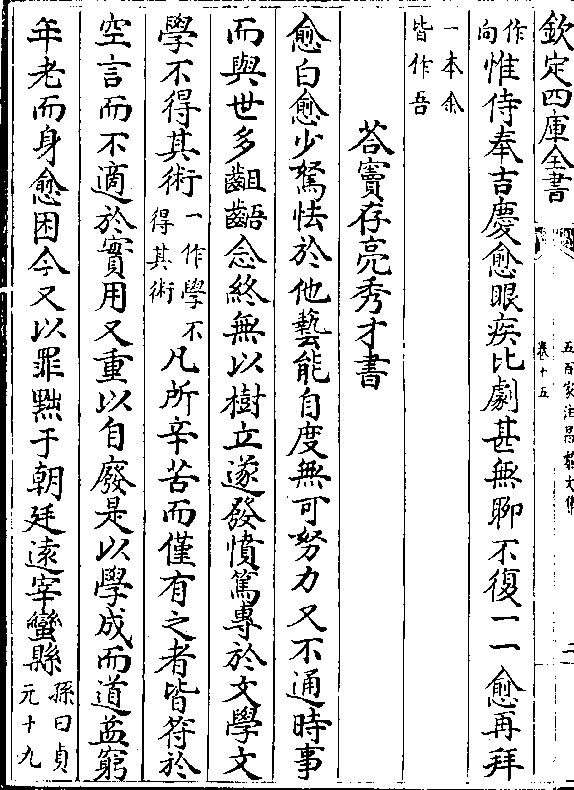 欽定四庫全書
五百家注昌黎文集
卷十五
二
作向惟侍奉吉慶愈眼疾比劇甚無聊不復一一愈再拜
一本余皆作吾
荅竇存亮秀才書
愈白愈少駑怯於他藝能自度無可努力又不通時事
而與世多齟齬念終無以樹立遂發憤篤專於文學文
學不得其術一作學不得其術凡所辛苦而僅有之者皆符於
空言而不適於實用又重以自廢是以學成而道益窮
年老而身愈困今又以罪黜于朝廷逺宰蠻縣孫曰貞元十九